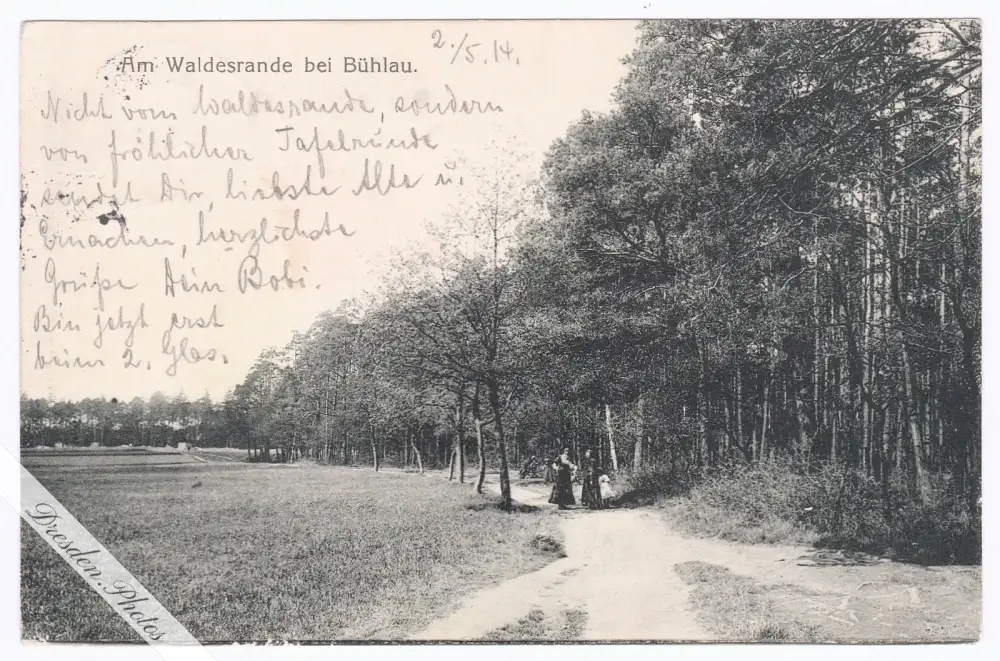 2./5.14.
Am Waldesrande bei Bühlau.
Nicht vom Waldesrande, sondern
von fröhlicher Tafelrunde
sendet Dir, liebste Alte u.
Ernachen, herzlichste
Grüße Dein Bobi.
Bin jetzt erst
beim 2. Glas.
Dresden.Photos